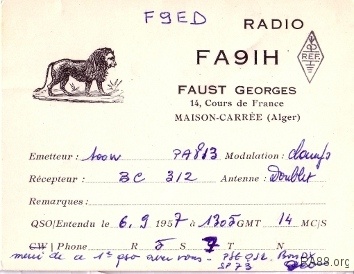 F9ED
RADIO
FA9IH
R.E.F.
FAUST GEORGES
14, Cours de France
MAISON-CARRÉE (Alger)
Emetteur : 100w PA 813 Modulation : Lamp
Récepteur : BC 312 Antenne : Doublet
Remarques :
QSO/Entendu le 6.9 1957 à 1305 GMT 14 MC/S
CW | Phone R 5 S 7 T N
merci de ce 1er qso avec vous. PSE QSL. Bons DX
SP 73
FA88.org